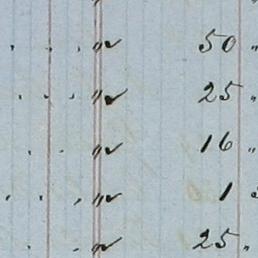 . . . " ✓ 50 "
. . . " ✓ 25 "
. . " ✓ 16 "
. . . " ✓ 1
. . " ✓ 25 "